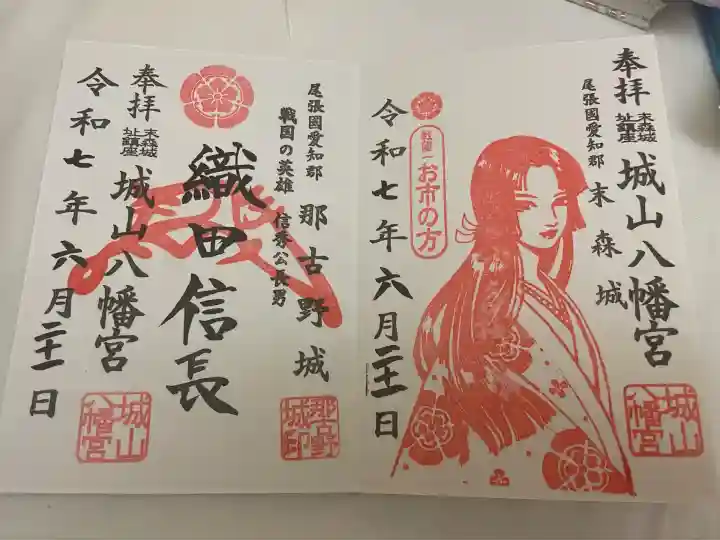 奉拝
末森城
址鎮座
城山八幡宮
城山
八幡宮
尾張國愛知郡
末森城
戦国一
お市の方
令和七年六月二十一日
尾張國愛知郡
那古野城
那古野
城印
戦国の英雄
信秀公長男
織田信長
奉拝
末森城
址鎮座
城山八幡宮
城山
八幡宮
令和七年六月二十一日